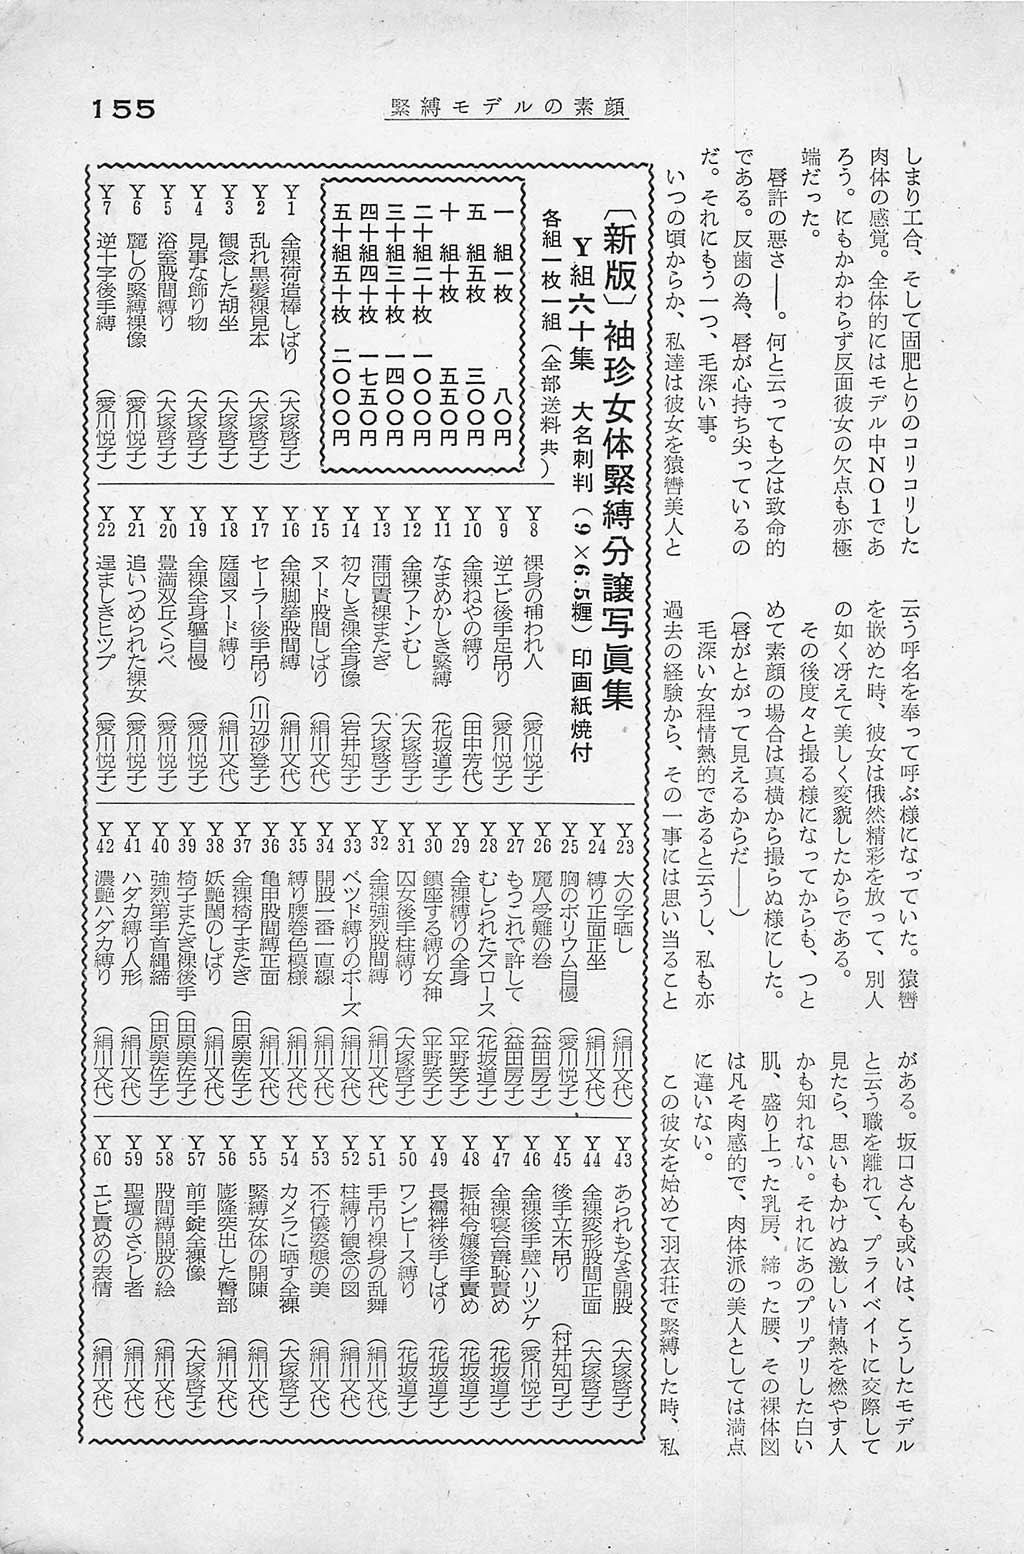 155
緊縛モデルの素顔
しまり工合、そして固肥とりのコリコリした
肉体の感覚。全体的にはモデル中NO1であ
ろう。にもかかわらず反面彼女の欠点も亦極
端だった。
唇許の悪さ――。何と云っても之は致命的
である。反歯の為、唇が心持ち尖っているの
だ。それにもう一つ、毛深い事。
いつの頃からか、私達は彼女を猿轡美人と
云う呼名を奉って呼ぶ様になっていた。猿轡
を嵌めた時、彼女は俄然精彩を放って、別人
の如く冴えて美しく変貌したからである。
その後度々と撮る様になってからも、つと
めて素顔の場合は真横から撮らぬ様にした。
(唇がとがって見えるからだ――)
毛深い女程情熱的であると云うし、私も亦
過去の経験から、その一事には思い当ること
がある。坂口さんも或いは、こうしたモデル
と云う職を離れて、プライベイトに交際して
見たら、思いもかけぬ激しい情熱を燃やす人
かも知れない。それにあのプリプリした白い
肌、盛り上った乳房、締った腰、その裸体図
は凡そ肉感的で、肉体派の美人としては満点
に違いない。
この彼女を始めて羽衣荘で緊縛した時、私
〔新版〕袖珍女体緊縛分譲写眞集
Y組六十集 大名刺判(9×6.5糎)印画紙焼付
各組一枚一組(全部送料共)
一組一枚 八〇円
五組五枚 三〇〇円
十組十枚 五五〇円
二十組二十枚 一〇〇〇円
三十組三十枚 一四〇〇円
四十組四十枚 一七五〇円
五十組五十枚 二〇〇〇円
Y1 全裸荷造棒しばり (大塚啓子)
Y2 乱れ黒髪裸見本 (大塚啓子)
Y3 観念した胡坐 (大塚啓子)
Y4 見事な飾り物 (大塚啓子)
Y5 浴室股間縛り (大塚啓子)
Y6 麗しの緊縛裸像 (愛川悦子)
Y7 逆十字後手縛 (愛川悦子)
Y8 裸身の捕われ人 (愛川悦子)
Y9 逆エビ後手足吊り (愛川悦子)
Y10 全裸ねやの縛り (田中芳代)
Y11 なまめかしき緊縛 (花坂道子)
Y12 全裸フトンむし (大塚啓子)
Y13 蒲団責裸またぎ (大塚啓子)
Y14 初々しき裸全身像 (岩井知子)
Y15 ヌード股間しばり (絹川文代)
Y16 全裸脚挙股間縛 (絹川文代)
Y17 セーラー後手吊り (川辺砂登子)
Y18 庭園ヌード縛り (絹川文代)
Y19 全裸全身軀自慢 (愛川悦子)
Y20 豊満双丘くらべ (愛川悦子)
Y21 追いつめられた裸女 (愛川悦子)
Y22 逞ましきヒップ (愛川悦子)
Y23 大の字晒し (絹川文代)
Y24 縛り正面正坐 (絹川文代)
Y25 胸のボリウム自慢 (愛川悦子)
Y26 麗人受難の巻 (益田房子)
Y27 もうこれで許して (益田房子)
Y28 むしられたズロース (花坂道子)
Y29 全裸縛りの全身 (平野笑子)
Y30 鎮座する縛り女神 (平野笑子)
Y31 囚女後手柱縛り (大塚啓子)
Y32 全裸強烈股間縛 (絹川文代)
Y33 ベツド縛りのポーズ (絹川文代)
Y34 開股一番一直線 (絹川文代)
Y35 縛り腰巻色模様 (絹川文代)
Y36 亀田股間縛正面 (絹川文代)
Y37 全裸椅子またぎ (田原美佐子)
Y38 妖艶閨のしばり (絹川文代)
Y39 椅子またぎ裸後手 (田原美佐子)
Y40 強烈第手首縄締 (田原美佐子)
Y41 ハダカ縛り人形 (絹川文代)
Y42 濃艶ハダカ縛り (絹川文代)
Y43 あられもなき開股 (大塚啓子)
Y44 全裸変形股間正面 (大塚啓子)
Y45 後手立木吊り (村井知可子)
Y46 全裸後手壁ハリツケ (愛川悦子)
Y47 全裸寝台羞恥責め (花坂道子)
Y48 振袖令嬢後手責め (花坂道子)
Y49 長襦袢後手しばり (花坂道子)
Y50 ワンピース縛り (花坂道子)
Y51 手吊り裸身の乱舞 (絹川文代)
Y52 柱縛り観念の図 (絹川文代)
Y53 不行儀姿態の美 (絹川文代)
Y54 カメラに晒す全裸 (大塚啓子)
Y55 緊縛女体の開陳 (絹川文代)
Y56 膨隆突出した臀部 (絹川文代)
Y57 前手錠全裸像 (大塚啓子)
Y58 股間縛開股の絵 (絹川文代)
Y59 聖壇のさらし者 (絹川文代)
Y60 エビ責めの表情 (絹川文代)